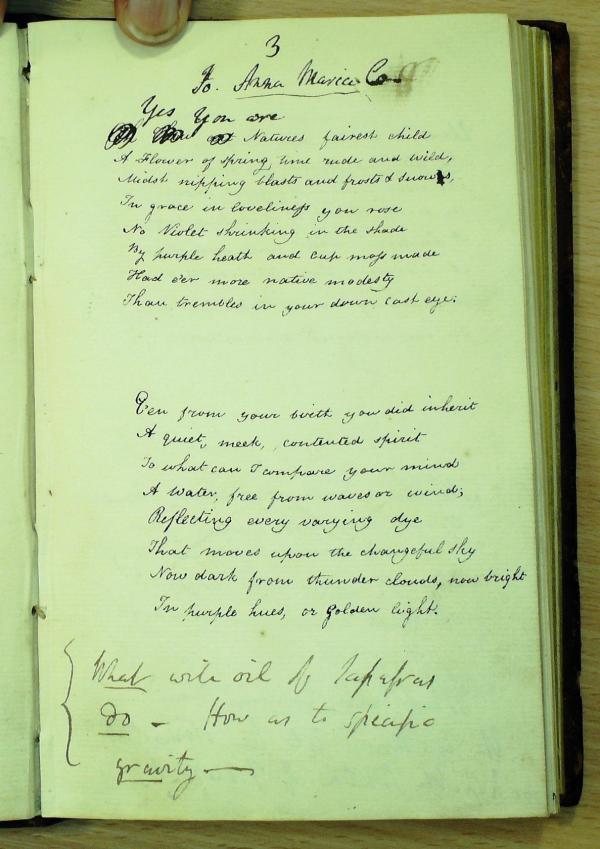 3
To. Anna Maria Co
Yes You are
Natures fairest child
A Flower of spring time rude and wild,
Midst nipping blasts and frosts & snows,
In grace in loveliness you rose
No Violet shrinking in the shade
By purple heath and Cup moss made
Had e'er more native modesty
Than trembles in your down cast eye:
E'en from your birth you did inherit
A quiet, meek, contented spirit
To what can I compare your mind
A water, free from waves or wind;
Reflecting every varying dye
That moves upon the changeful sky
Now dark from thunder clouds, now bright
In purple hues, or golden light.
What will oil of Sassafras
do - How as to specific
gravity —